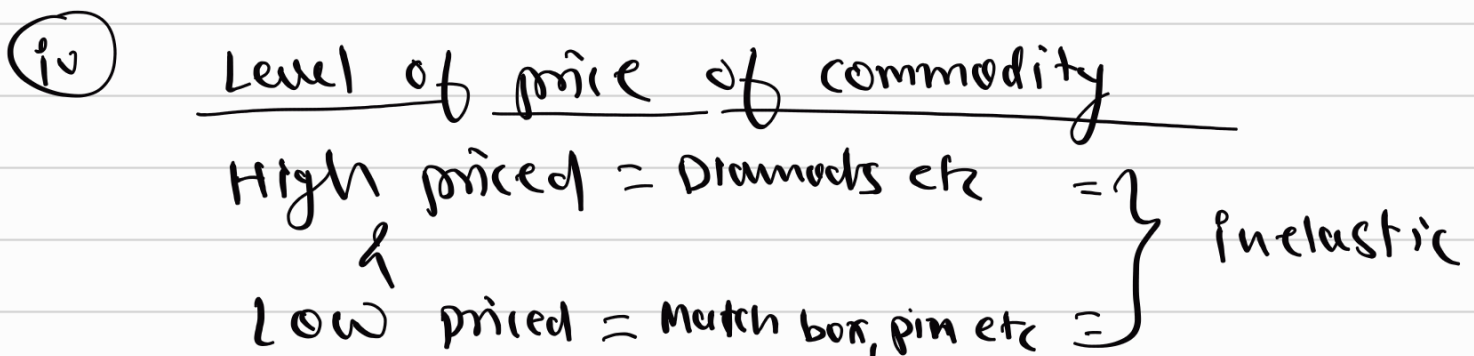 iv Level of price of commodity
High priced = Diamods etc =
&
Low priced = Match box, pin etc =
inelastic